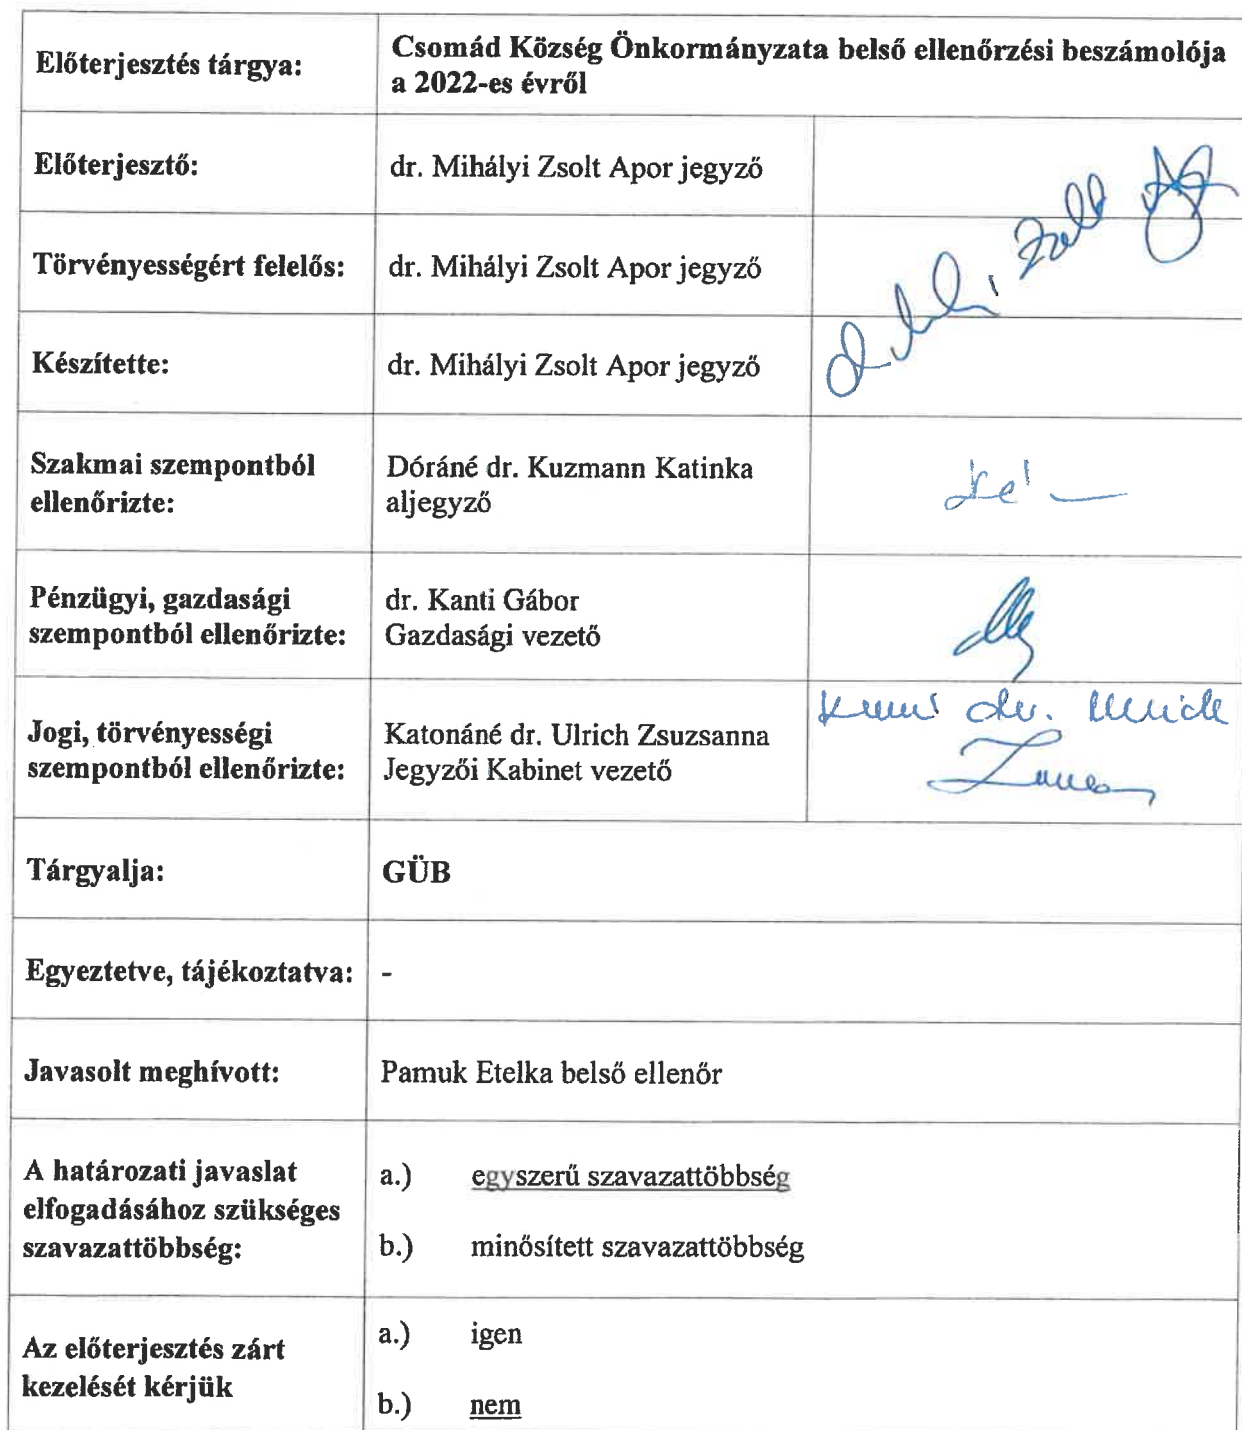 Előterjesztés tárgya:
Csomád Község Önkormányzata belső ellenőrzési beszámolója
a 2022-es évről
Előterjesztő:
dr. Mihályi Zsolt Apor jegyző
Törvényességért felelős:
dr. Mihályi Zsolt Apor jegyző
Készítette:
dr. Mihályi Zsolt Apor jegyző
Szakmai szempontból
ellenőrizte:
Dóráné dr. Kuzmann Katinka
aljegyző
Pénzügyi, gazdasági
szempontból ellenőrizte:
dr. Kanti Gábor
Gazdasági vezető
Jogi, törvényességi
szempontból ellenőrizte:
Katonáné dr. Ulrich Zsuzsanna
Jegyzői Kabinet vezető
dr.
Tárgyalja:
GÜB
Egyeztetve, tájékoztatva:
-
Javasolt meghívott:
Pamuk Etelka belső ellenőr
A határozati javaslat
elfogadásához szükséges
szavazattöbbség:
a.) egyszerű szavazattöbbség
b.) minősített szavazattöbbség
Az előterjesztés zárt
kezelését kérjük
a.) igen
b.) nem